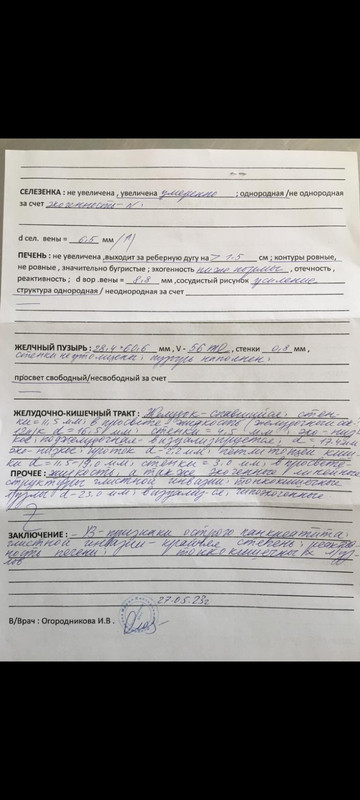 СЕЛЕЗЕНКА : не увеличена , увеличена умеренно ; однородная /не однородная
за счет эхогенность - N.
d сел. вены = 6.5 мм /N/
ПЕЧЕНЬ : не увеличена ,выходит за реберную дугу на > 1.5 см ; контуры ровные,
не ровные , значительно бугристые ; эхогенность ниже нормы , отечность ,
реактивность ; d вор .вены = 8.8 мм ,сосудистый рисунок усиление
структура однородная / неоднородная за счет
ЖЕЛЧНЫЙ ПУЗЫРЬ : 28.4 × 60.6 мм , V - 56 ml , стенки 0,8 мм ,
стенки не утолщены; пузырь наполнен;
просвет свободный/несвободный за счет
ЖЕЛУДОЧНО-КИШЕЧНЫЙ ТРАКТ : Желудок - стен-
ки = 4,5 мм; в просвете жидкость /
d = 16.5 мм; стенки = 4,5 мм;
поджелудочная визуализируется; d = 17.4 мм
проток d - 2.2 мм; петли тонкой киш-
ки d = 11.5 - 19.0 мм; стенки = 3.0 мм; в просвете -
ПРОЧЕЕ : жидкость, а также эхогенные линейные
структуры глистной инвазии; тонкокишечные
d - 23.0 мм;
ЗАКЛЮЧЕНИЕ : - В - признаки острого панкреатита;
глистной инвазии - степень; реактив-
ность печени; тонкокишечных
27.05.23г
В/Врач : Огородникова И.В .